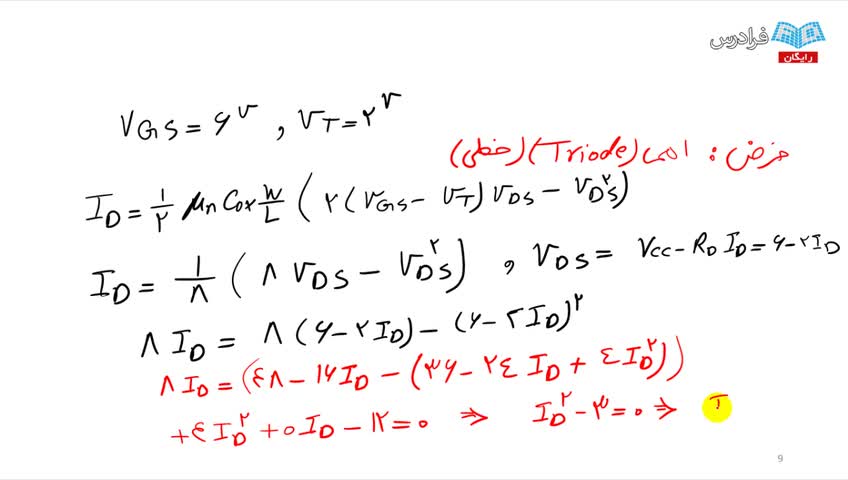 فرادرس
رایگان
V_GS = ۶^V , V_T = ۲^V
فرض : اهمی (Triode) (خطی)
I_D = ۱/۲ μ_n C_ox W/L ( ۲ ( V_GS - V_T ) V_DS - V_DS^۲ )
I_D = ۱/۸ ( ۸ V_DS - V_DS^۲ ) , V_DS = V_CC - R_D I_D = ۶ - ۲I_D
۸ I_D = ۸ ( ۶ - ۲I_D ) - ( ۶ - ۲I_D )^۲
۸ I_D = ( ۴۸ - ۱۶I_D - ( ۳۶ - ۲۴ I_D + ۴ I_D^۲ ) )
+۴ I_D^۲ + ۰ I_D - ۱۲ = ۰ ⇒ I_D^۲ - ۳ = ۰ ⇒ I
9